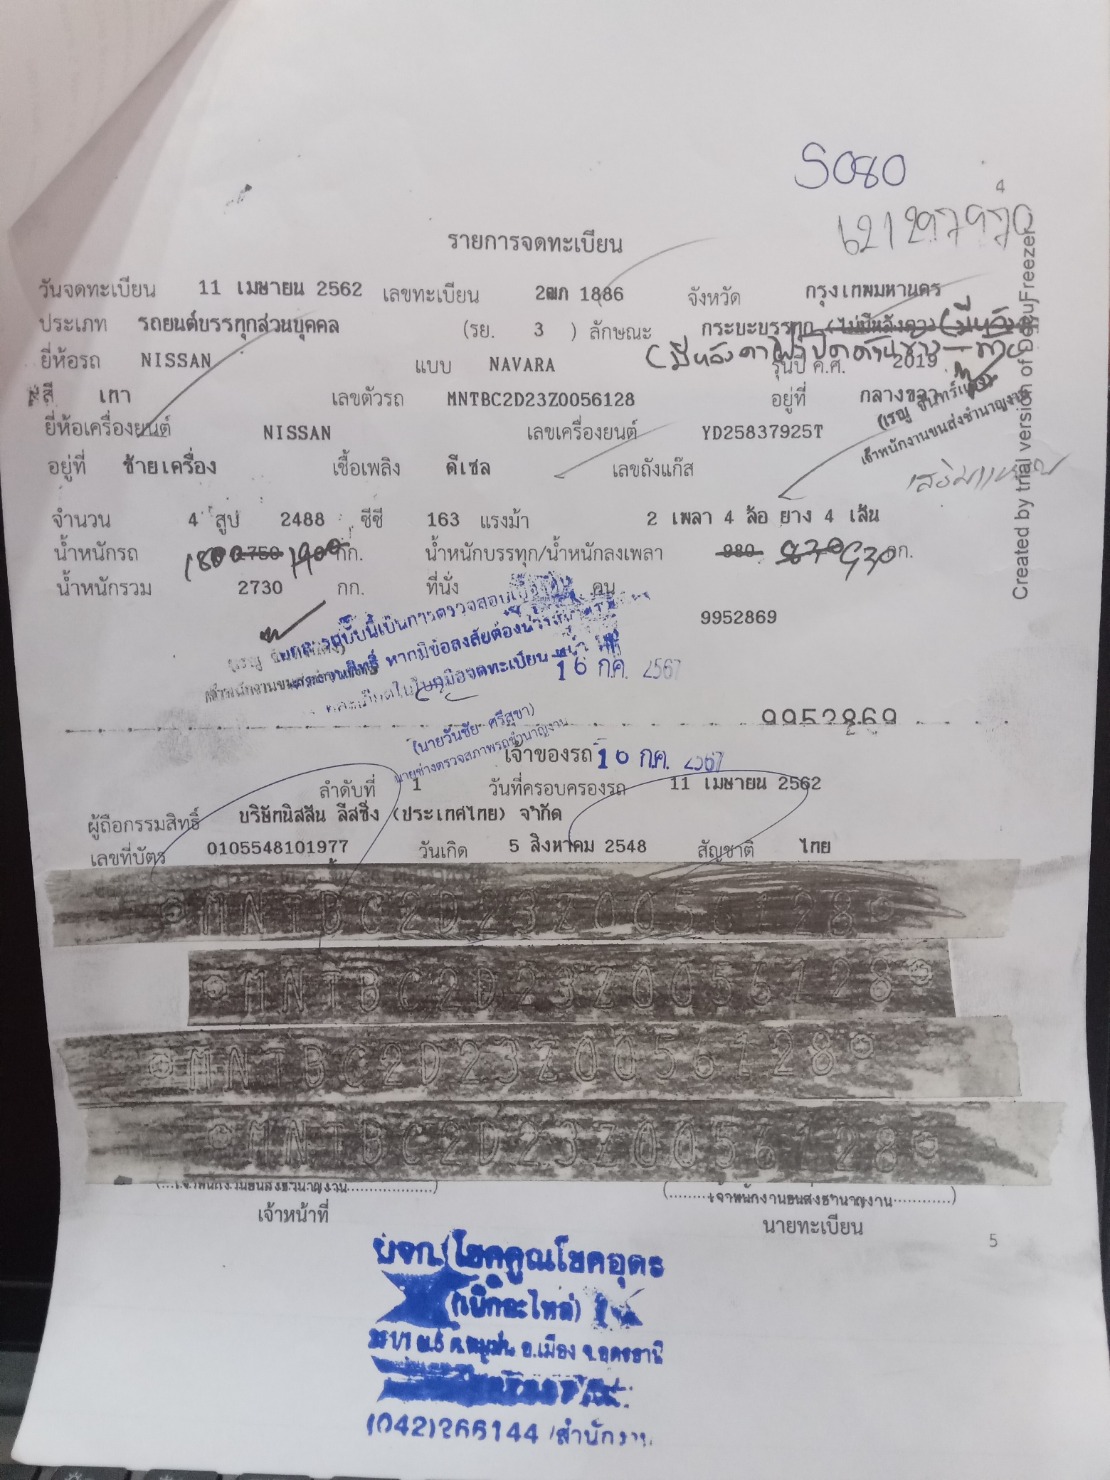 S080
4
621297970
รายการจดทะเบียน
วันจดทะเบียน 11 เมษายน 2562 เลขทะเบียน 2ฒก 1886 จังหวัด กรุงเทพมหานคร
ประเภท รถยนต์บรรทุกส่วนบุคคล (รย. 3 ) ลักษณะ กระบะบรรทุก (ไม่มีหลังคา)
ยี่ห้อรถ NISSAN แบบ NAVARA รุ่นปี ค.ศ. 2019
สี เทา เลขตัวรถ MNTBC2D23Z0056128 อยู่ที่ กลางขวา
ยี่ห้อเครื่องยนต์ NISSAN เลขเครื่องยนต์ YD25837925T
เจ้าพนักงานขนส่งชำนาญงาน
อยู่ที่ ซ้ายเครื่อง เชื้อเพลิง ดีเซล เลขถังแก๊ส
จำนวน 4 สูบ 2488 ซีซี 163 แรงม้า 2 เพลา 4 ล้อ ยาง 4 เส้น
น้ำหนักรถ 1750 1900 กก. น้ำหนักบรรทุก/น้ำหนักลงเพลา 980 930 กก.
น้ำหนักรวม 2730 กก. ที่นั่ง คน
9952869
16 ก.ค. 2567
9952869
(นายวันชัย ศรีสุชา)
นายช่างตรวจสภาพรถชำนาญงาน
เจ้าของรถ 16 ก.ค. 2567
ลำดับที่ 1 วันที่ครอบครองรถ 11 เมษายน 2562
ผู้ถือกรรมสิทธิ์ บริษัทนิสสัน ลีสซิ่ง (ประเทศไทย) จำกัด
เลขที่บัตร 0105548101977 วันเกิด 5 สิงหาคม 2548 สัญชาติ ไทย
MNTBC2D23Z0056128
MNTBC2D23Z0056128
MNTBC2D23Z0056128
MNTBC2D23Z0056128
เจ้าหน้าที่
นายทะเบียน
5
หจก.โชคคูณโชคอุดร
อ.เมือง จ.อุดรธานี
(042)266144 /สำนักงาน
Created by trial version of DocuFreezer